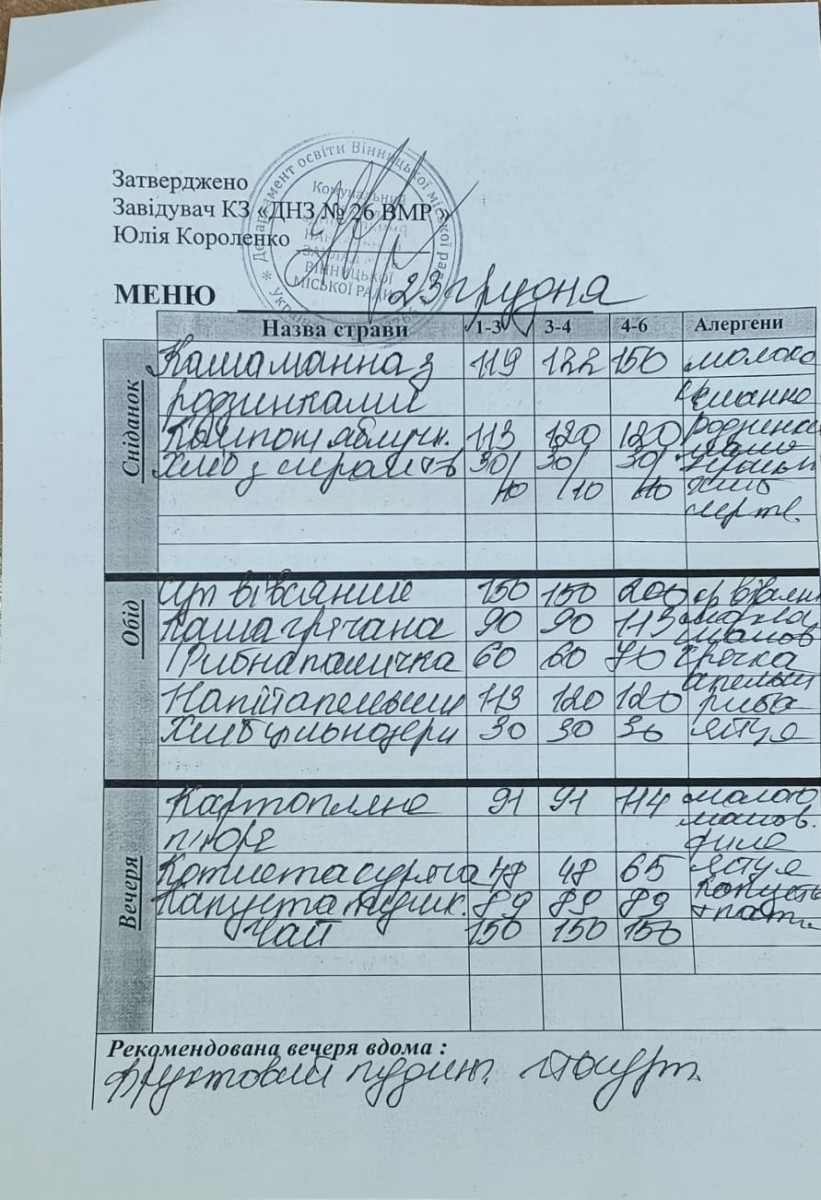 Затверджено
Завідувач КЗ «ДНЗ № 26 ВМР»
Юлія Короленко
Департамент освіти Вінницької міської ради
Комунальний
ЗАКЛАД
ВІННИЦЬКОЇ
МІСЬКОЇ РАДИ
МЕНЮ 23 грудня
Назва страви 1-3 3-4 4-6 Алергени
Сніданок
Каша манна з 119 122 150 молоко
родзинками манно
Компот яблучн. 113 120 120 родзинки
Хліб з 30/ 30/ 30/
10 /10 10 хліб
Обід
Суп вівсяний 150 150 200
Каша гречана 90 90 113
Рибна паличка 60 60 70 гречка
Напій апельсин 113 120 120 риба
Хліб цільнозерн 30 30 30 яйця
Вечеря
Картопляне 91 91 114 молоко
пюре філе
Котлета куряча 48 48 65 яйця
Капуста тушк. 89 89 89 капуста
Чай 150 150 150
Рекомендована вечеря вдома :
Фруктовий пудинг. Йогурт.